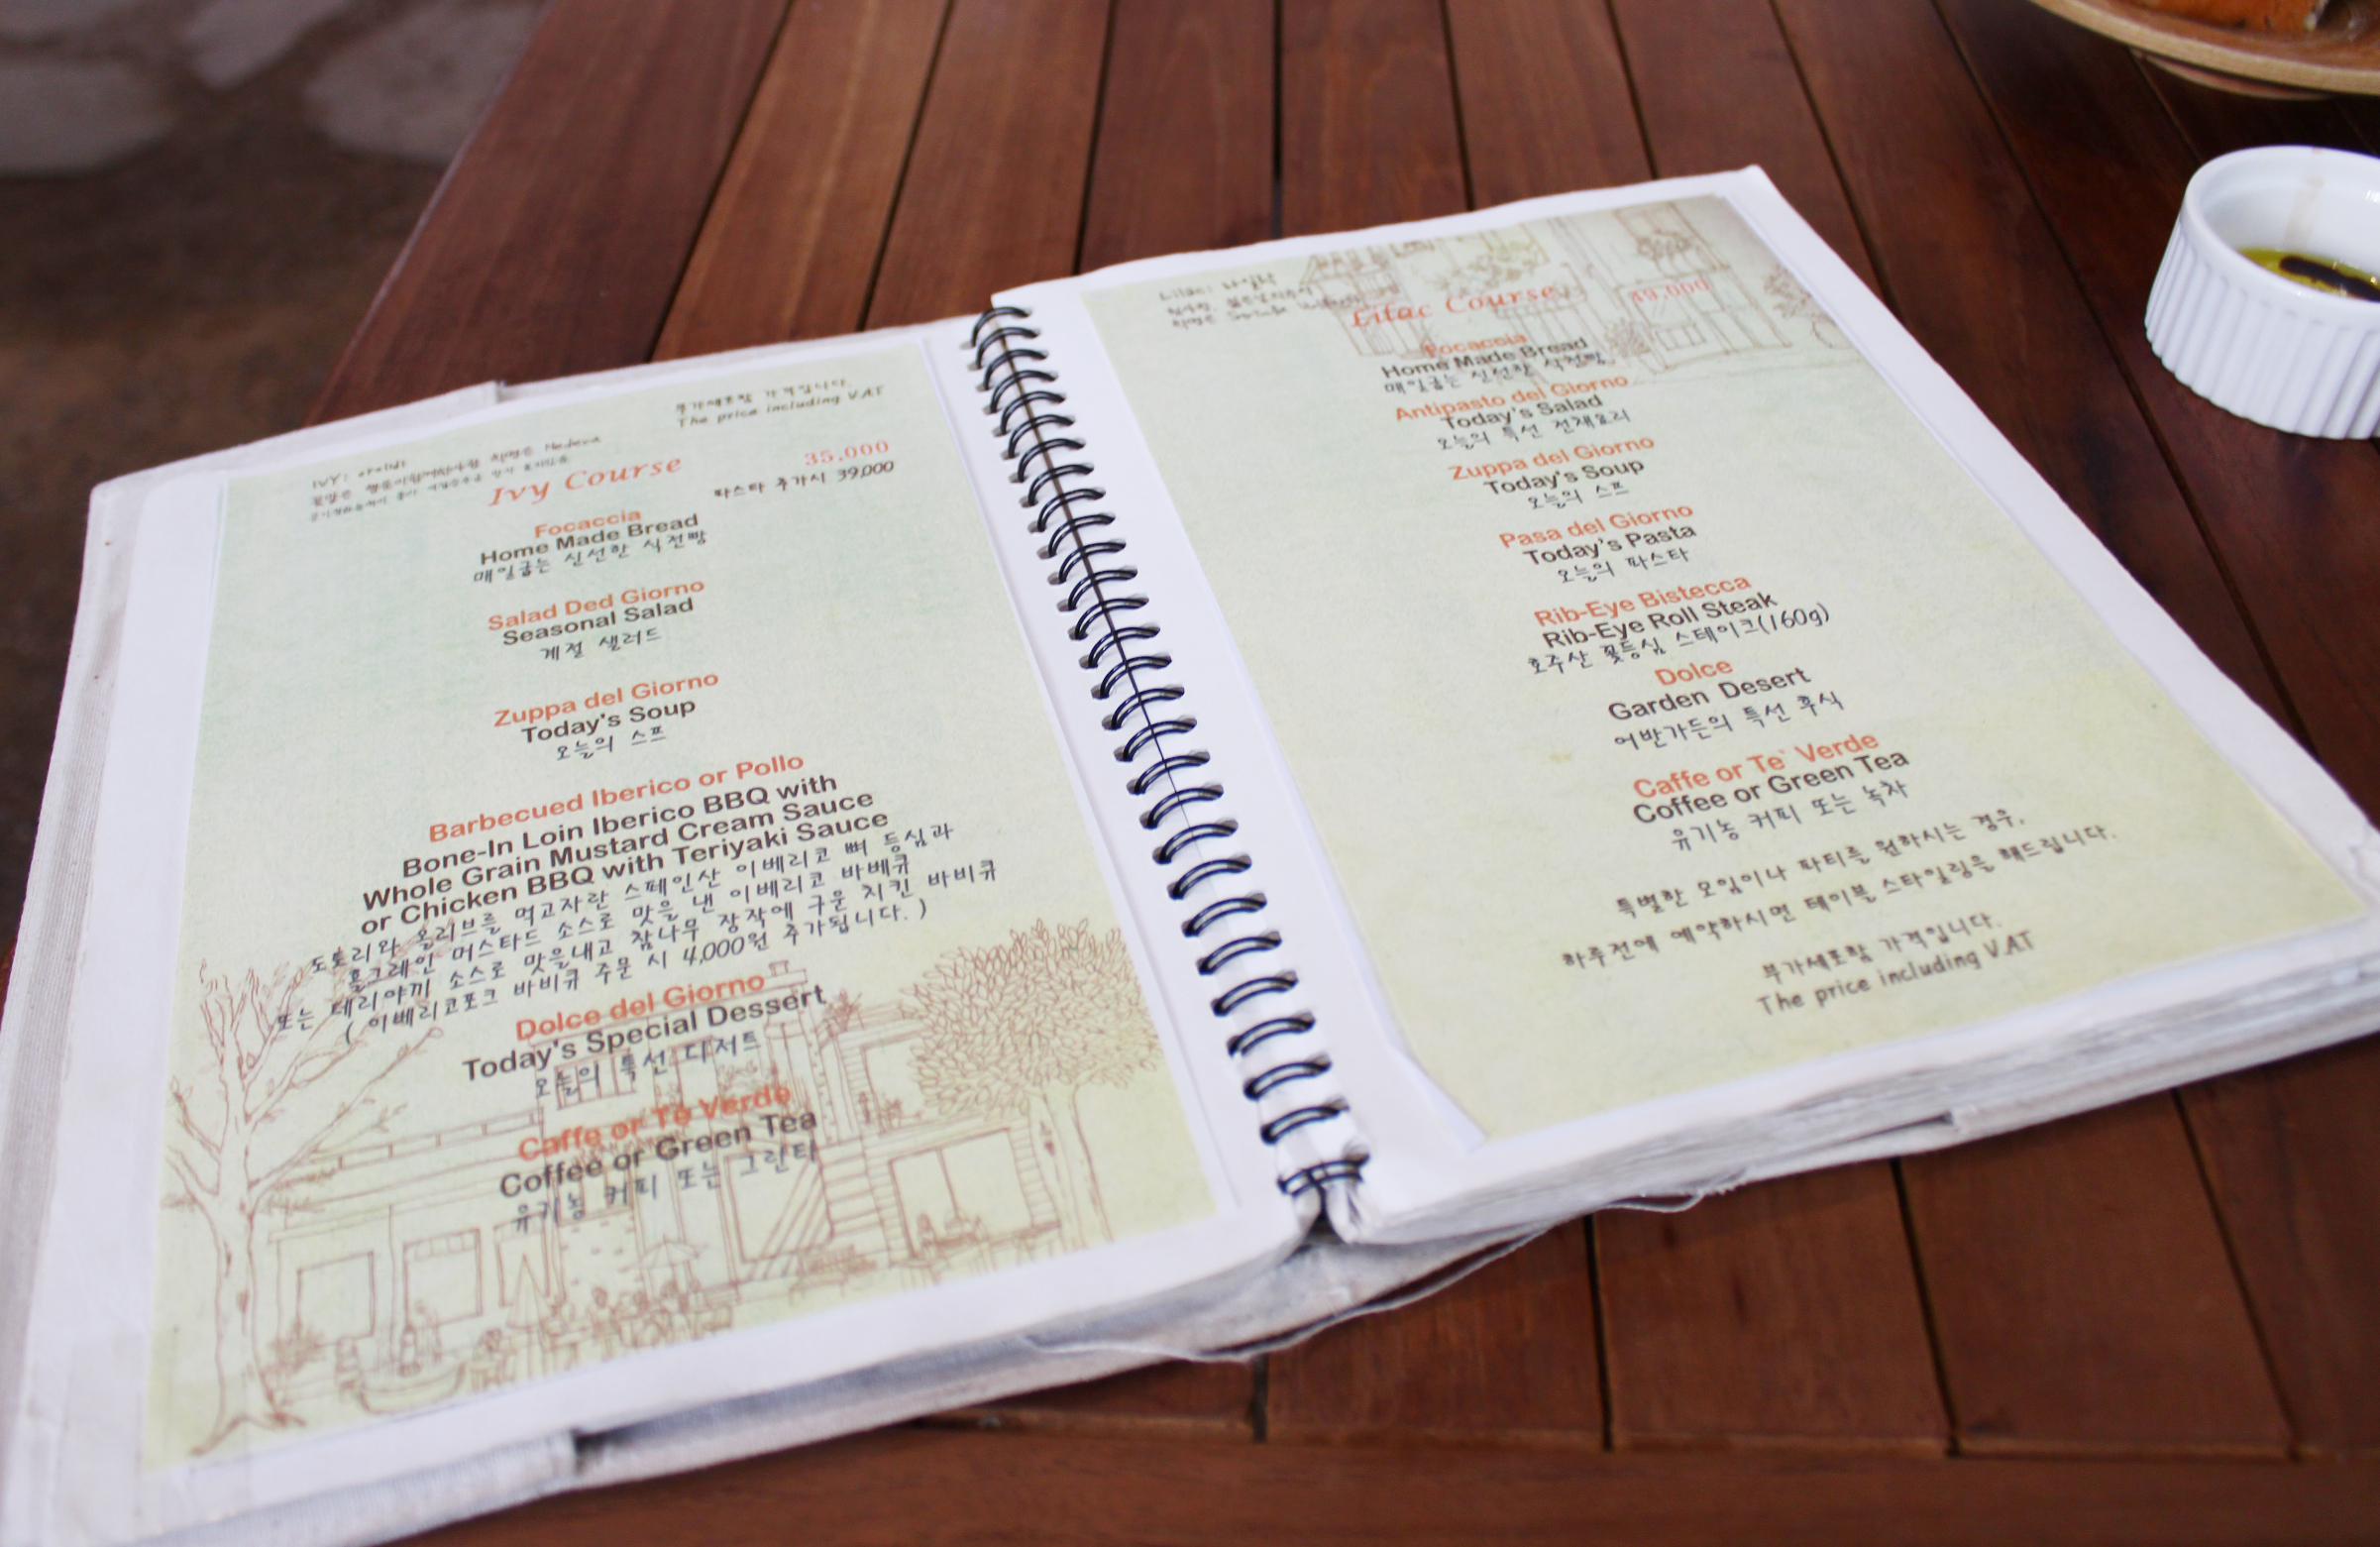 부가세포함 가격입니다.
The price including V.A.T
IVY:
꽃말은
Ivy Course
35,000
파스타 추가시 39,000
Focaccia
Home Made Bread
매일굽는 신선한 식전빵
Salad Ded Giorno
Seasonal Salad
계절 샐러드
Zuppa del Giorno
Today's Soup
오늘의 스프
Barbecued Iberico or Pollo
Bone-In Loin Iberico BBQ with
Whole Grain Mustard Cream Sauce
or Chicken BBQ with Teriyaki Sauce
도토리와 올리브를 먹고자란 스페인산 이베리코 뼈 등심과
홀그레인 머스타드 소스로 맛을 낸 이베리코 바베큐
또는 데리야끼 소스로 맛을내고 참나무 장작에 구운 치킨 바비큐
( 이베리코포크 바비큐 주문 시 4,000원 추가됩니다. )
Dolce del Giorno
Today's Special Dessert
오늘의 특선 디저트
Caffe or Te Verde
Coffee or Green Tea
유기농 커피 또는 그린티
Lilac: 라일락
Lilac Course
49,000
Focaccia
Home Made Bread
매일굽는 신선한 식전빵
Antipasto del Giorno
Today's Salad
오늘의 특선 전채요리
Zuppa del Giorno
Today's Soup
오늘의 스프
Pasa del Giorno
Today's Pasta
오늘의 파스타
Rib-Eye Bistecca
Rib-Eye Roll Steak
호주산 꽃등심 스테이크(160g)
Dolce
Garden Desert
어반가든의 특선 후식
Caffe or Te` Verde
Coffee or Green Tea
유기농 커피 또는 녹차
특별한 모임이나 파티를 원하시는 경우,
하루전에 예약하시면 테이블 스타일링을 해드립니다.
부가세포함 가격입니다.
The price including V.A.T